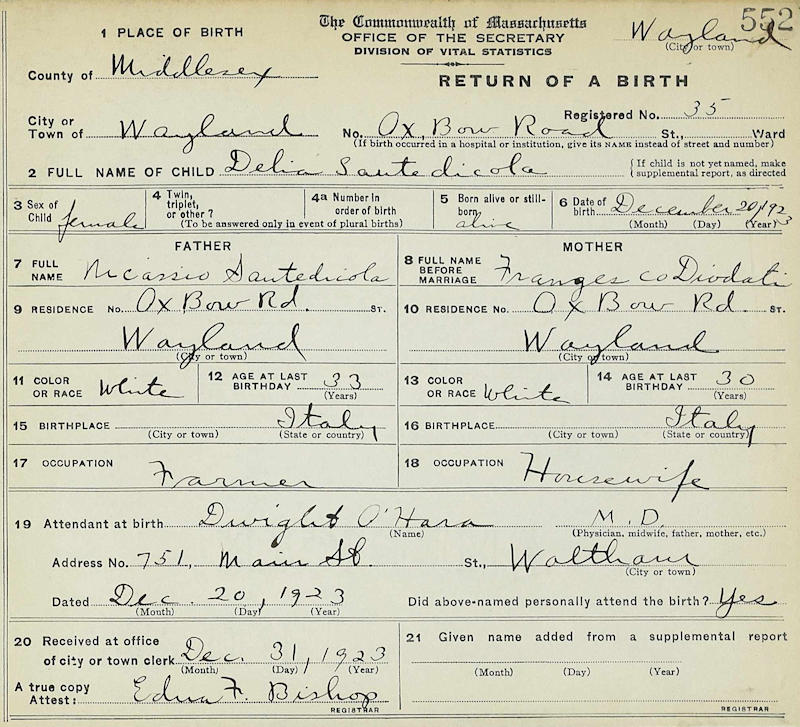 552
The Commonwealth of Massachusetts
OFFICE OF THE SECRETARY
DIVISION OF VITAL STATISTICS
Wayland
(City or town)
1 PLACE OF BIRTH
County of Middlesex
RETURN OF A BIRTH
Registered No. 35
City or
Town of Wayland No. Ox Bow Road St., Ward
(If birth occurred in a hospital or institution, give its NAME instead of street and number)
2 FULL NAME OF CHILD Delia Santedicola
{If child is not yet named, make
supplemental report, as directed
3 Sex of
Child female
4 Twin,
triplet,
or other?
4a Number in
order of birth
(To be answered only in event of plural births)
5 Born alive or still-
born alive
6 Date of
birth December 20, 1923
(Month) (Day) (Year)
FATHER
7 FULL
NAME Nicassio Santedicola
9 RESIDENCE No. Ox Bow Rd. ST.
Wayland
(City or town)
11 COLOR
OR RACE White
12 AGE AT LAST
BIRTHDAY 33
(Years)
15 BIRTHPLACE Italy
(City or town) (State or country)
17 OCCUPATION Farmer
MOTHER
8 FULL NAME
BEFORE
MARRIAGE Diodati
10 RESIDENCE No. Ox Bow Rd. ST.
Wayland
(City or town)
13 COLOR
OR RACE White
14 AGE AT LAST
BIRTHDAY 30
(Years)
16 BIRTHPLACE Italy
(City or town) (State or country)
18 OCCUPATION Housewife
19 Attendant at birth Dwight O'Hara M.D.
(Name) (Physician, midwife, father, mother, etc.)
Address No. 751, Main St. St., Waltham
(City or town)
Dated Dec. 20, 1923 Did above-named personally attend the birth? Yes
(Month) (Day) (Year)
20 Received at office
of city or town clerk Dec. 31, 1923
(Month) (Day) (Year)
A true copy
Attest: Edna F. Bishop
REGISTRAR
21 Given name added from a supplemental report
(Month) (Day) (Year)
REGISTRAR